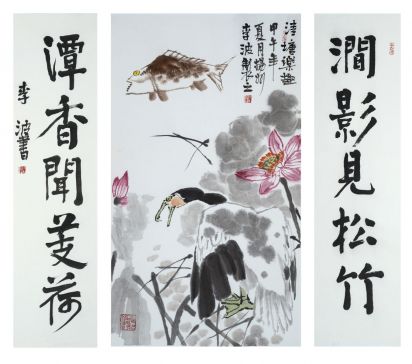 澗影見松竹
清塘樂趣
甲午年
夏月揚州
李波
潭香聞芰荷
李波書